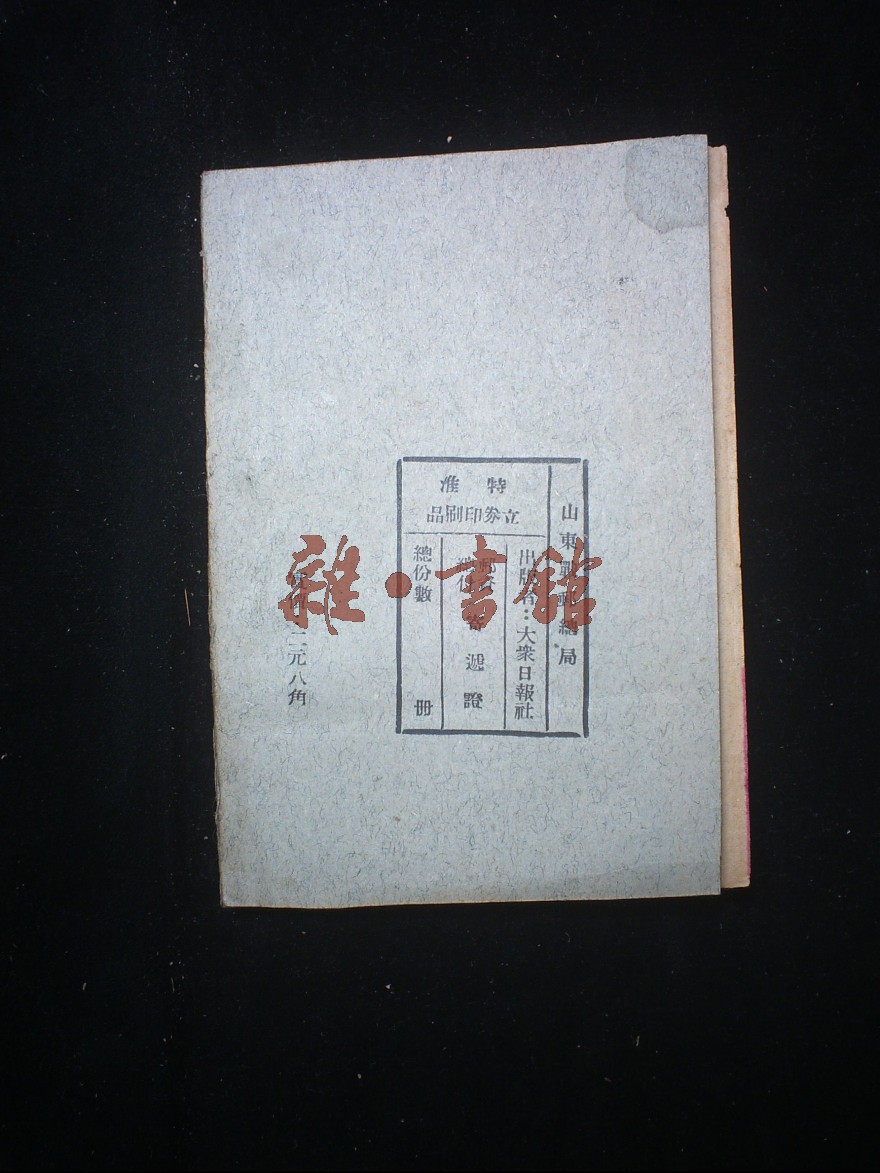 山東戰郵總局
特准
立券印刷品
出版者：大衆日報社
寄遞證
總份數 冊
二元八角
雜·書館